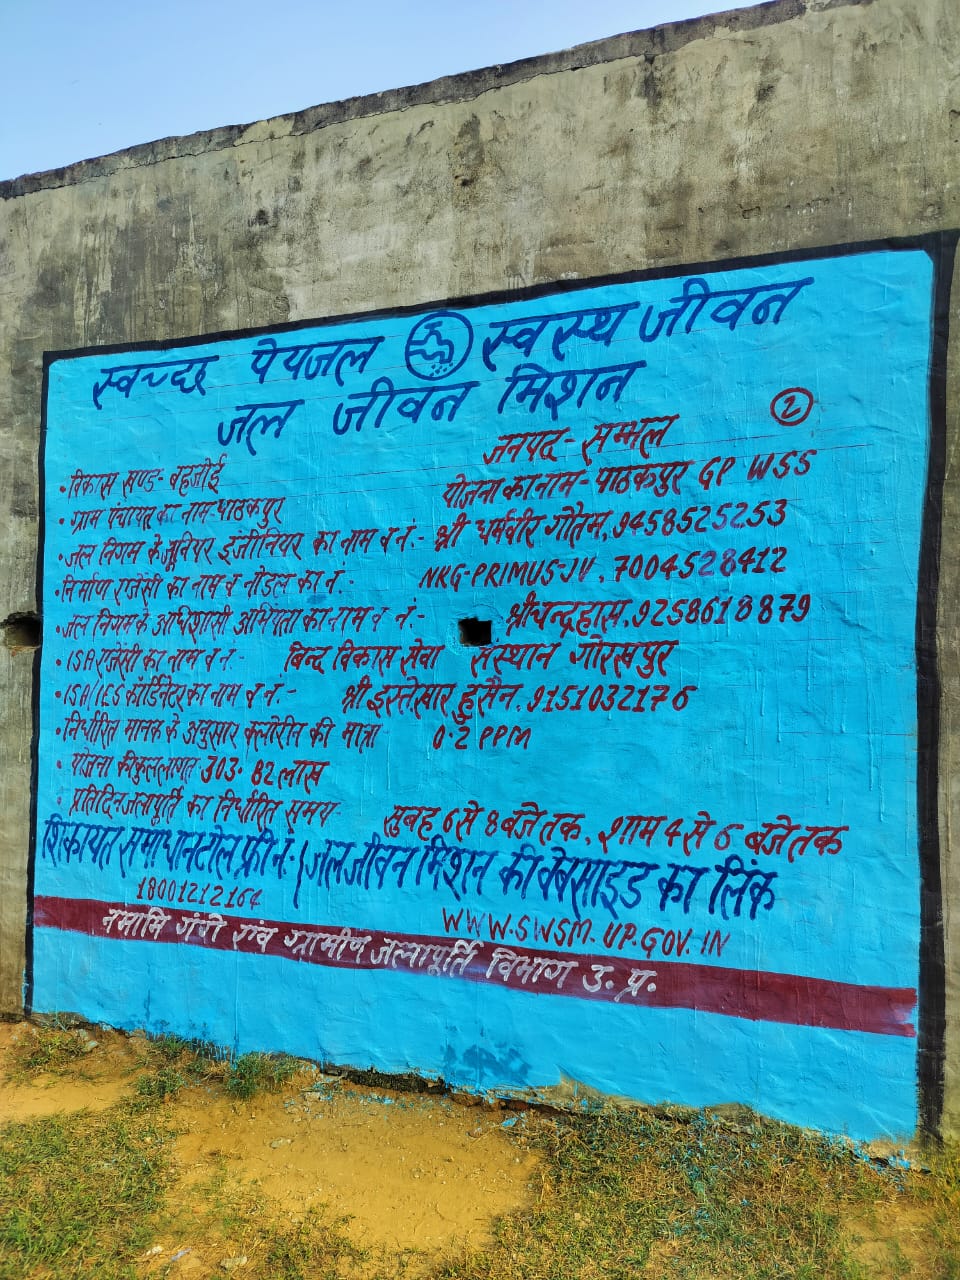 स्वच्छ पेयजल स्वस्थ जीवन
जल जीवन मिशन
2
जनपद- सम्भल
• विकास खण्ड- बहजोई
• ग्राम पंचायत का नाम- पाठकपुर योजना का नाम- पाठकपुर GP WSS
• जल निगम के जूनियर इंजीनियर का नाम व नं.- श्री धर्मवीर गौतम, 9458525253
• निर्माण एजेंसी का नाम व नोडल का नं.- NKG-PRIMUS-JV, 7004528412
• जल निगम के अधिशासी अभियंता का नाम व नं.- श्री चन्द्रहास, 9258618879
• ISA एजेंसी का नाम व नं.- बिन्द विकास सेवा संस्थान गोरखपुर
• ISA/IES कॉर्डिनेटर का नाम व नं.- श्री इस्तेखार हुसैन, 9151032176
• निर्धारित मानक के अनुसार क्लोरीन की मात्रा 0.2 PPM
• योजना की कुल लागत- 303.82 लाख
• प्रतिदिन जलापूर्ति का निर्धारित समय- सुबह 6 से 8 बजे तक, शाम 4 से 6 बजे तक
शिकायत समाधान टोल फ्री नं.- / जल जीवन मिशन की वेबसाइड का लिंक
18001212164 WWW.SWSM.UP.GOV.IN
नमामि गंगे एंव ग्रामीण जलापूर्ति विभाग उ.प्र.